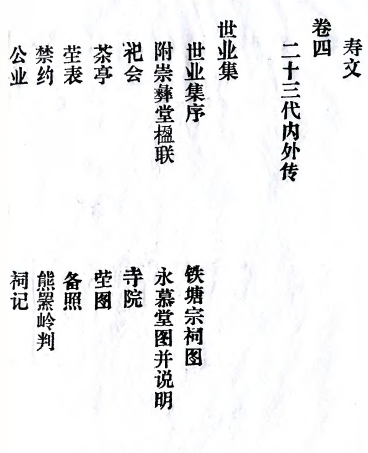 寿文
卷四
二十三代内外传
世业集
世业集序
铁塘宗祠图
附崇彝堂楹联
永慕堂图并说明
祀会
寺院
茶亭
茔图
茔表
备照
禁约
熊罴岭判
公业
祠记